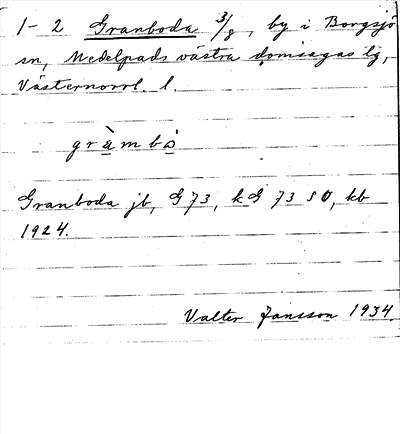 1-2 Granboda 3/8, by i Borgsjö
sn, Medelpads västra domsagas lg,
Västernorrl. l.
gràmbò
Granboda jb, G 73, kG 73 SO, kb
1924.
Valter Jansson 1934.